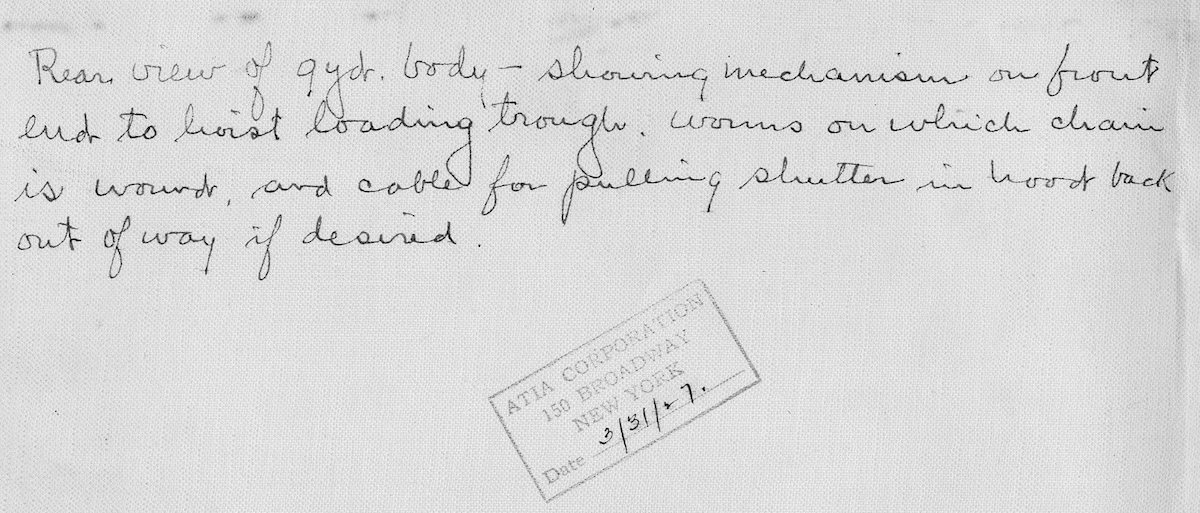 Rear view of 9yd. body - showing mechanism on front
end to hoist loading trough, worms on which chain
is wound, and cable for pulling shutter in hood back
out of way if desired.
ATIA CORPORATION
150 BROADWAY
NEW YORK
Date 3/31/27.